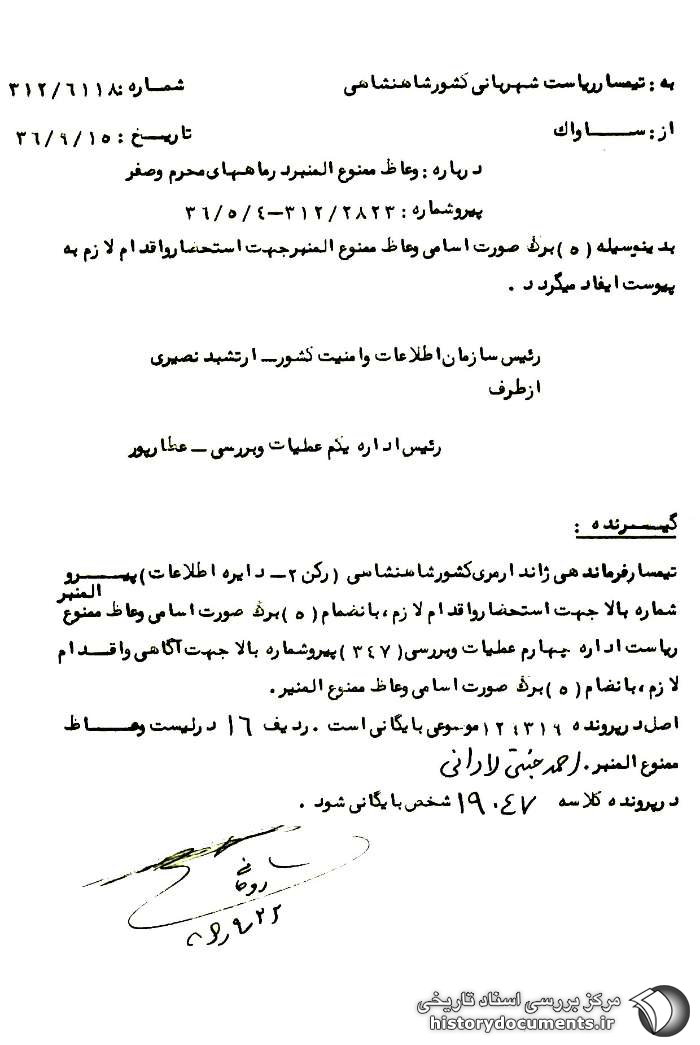 به : تیمسار ریاست شهربانی کشور شاهنشاهی شماره : ۳۱۲/۶۱۱۸
از : ساواک تاریخ : ۳۶/۹/۱۵
درباره : وعاظ ممنوع المنبر در ماههای محرم وصفر
پیرو شماره : ۳۱۲/۲۸۲۳-۳۶/۵/۴
بدینوسیله (۵) برگ صورت اسامی وعاظ ممنوع المنبر جهت استحضار واقدام لازم به
پیوست ایفاد میگردد .
رئیس سازمان اطلاعات وامنیت کشور ـ ارتشبد نصیری
ازطرف
رئیس اداره یکم عملیات وبررسی ـ عطارپور
گیرنده :
تیمسار فرماندهی ژاندارمری کشور شاهنشاسی (رکن ۲ـ دایره اطلاعات) پیرو
المنبر
شماره بالا جهت استحضار واقدام لازم ، بانضمام (۵) برگ صورت اسامی وعاظ ممنوع
ریاست اداره چهارم عملیات وبررسی (۳۴۷) پیرو شماره بالا جهت آگاهی واقدام
لازم ، بانضام (۵) برگ صورت اسامی وعاظ ممنوع المنبر .
اصل درپرونده ۱۲۴۳۱۹ موسوعی بایگانی است . ردیف ۱۶ درلیست وعاظ
ممنوع المنبر . احمد جنتی لادانی
درپرونده کلاسه ۱۹۰۴۷ شخص بایگانی شود .
روحانی
مرکز بررسی اسناد تاریخی
historydocuments.ir